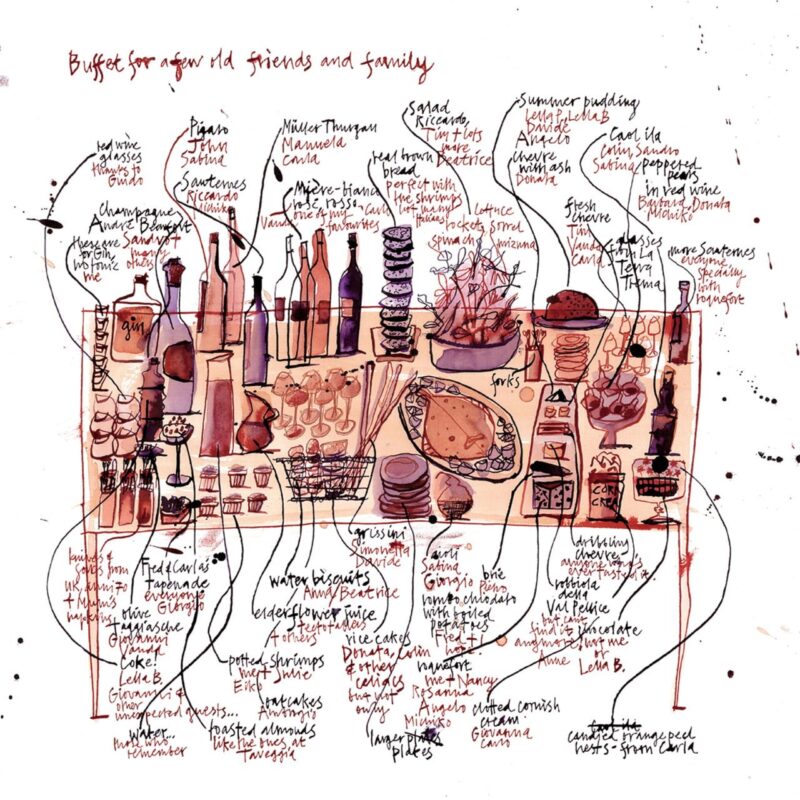 Buffet for a few old friends and family
red wine
glasses
thanks to
Guido
Champagne
André Beaufort
Sandro +
many
others
these are
for Gin,
no tonic
me
Pigato
John
Sabina
Sauternes
Riccardo
Michiko
Müller Thurgau
Manuela
Carla
rose, rosso
one of my
favourites
real brown
bread
perfect with
the shrimps
Salad
Riccardo,
Tim + lots
more
Beatrice
lettuce
rocket, sorrel
spinach
mizuna
Summer pudding
Lella P, Lella B
Davide
Angelo
chevre
with ash
Donata
Caol ila
Colin, Sandro
Sabina
peppered
pears
in red wine
Barbara, Donata
Michiko
fresh
chevre
Tim
Vanda
Carla
glasses
from La
Terra
Trema
more Sauternes
everyone
specially
with
roquefort
gin
forks
knives &
forks from
UK, anni 70
+ Mum's
napkins
Fred & Carla's
tapenade
everyone
Giorgio
olive
taggiasche
Giovanni
Vanda
Coke!
Lella B.
Giovanni &
other
unexpected guests...
water...
those who
remember
water biscuits
Anna, Beatrice
elderflower juice
teetotallers
+ others
potted shrimps
me + Julie
Eiko
oatcakes
Ambrogio
toasted almonds
like the ones at
Taveggia
grissini
Simonetta
Davide
rice cakes
Donata, Colin
& other
celiacs
but not
only
larger plates
plates
aioli
Sabina
Giorgio
rombo chiodato
with boiled
potatoes
Fred + I
hope!
roquefort
me + Nancy
Rosanna
Angelo
Michiko
brie
Piero
clotted cornish
cream
Giovanna
Carlo
dribbling
chevre
anyone who's
ever tasted it..
robbiola
della
Val Pellice
but can't
find it
anymore
Anne
chocolate
not me
Lella B.
Caol ila
candied orange peel
nests - from Carla